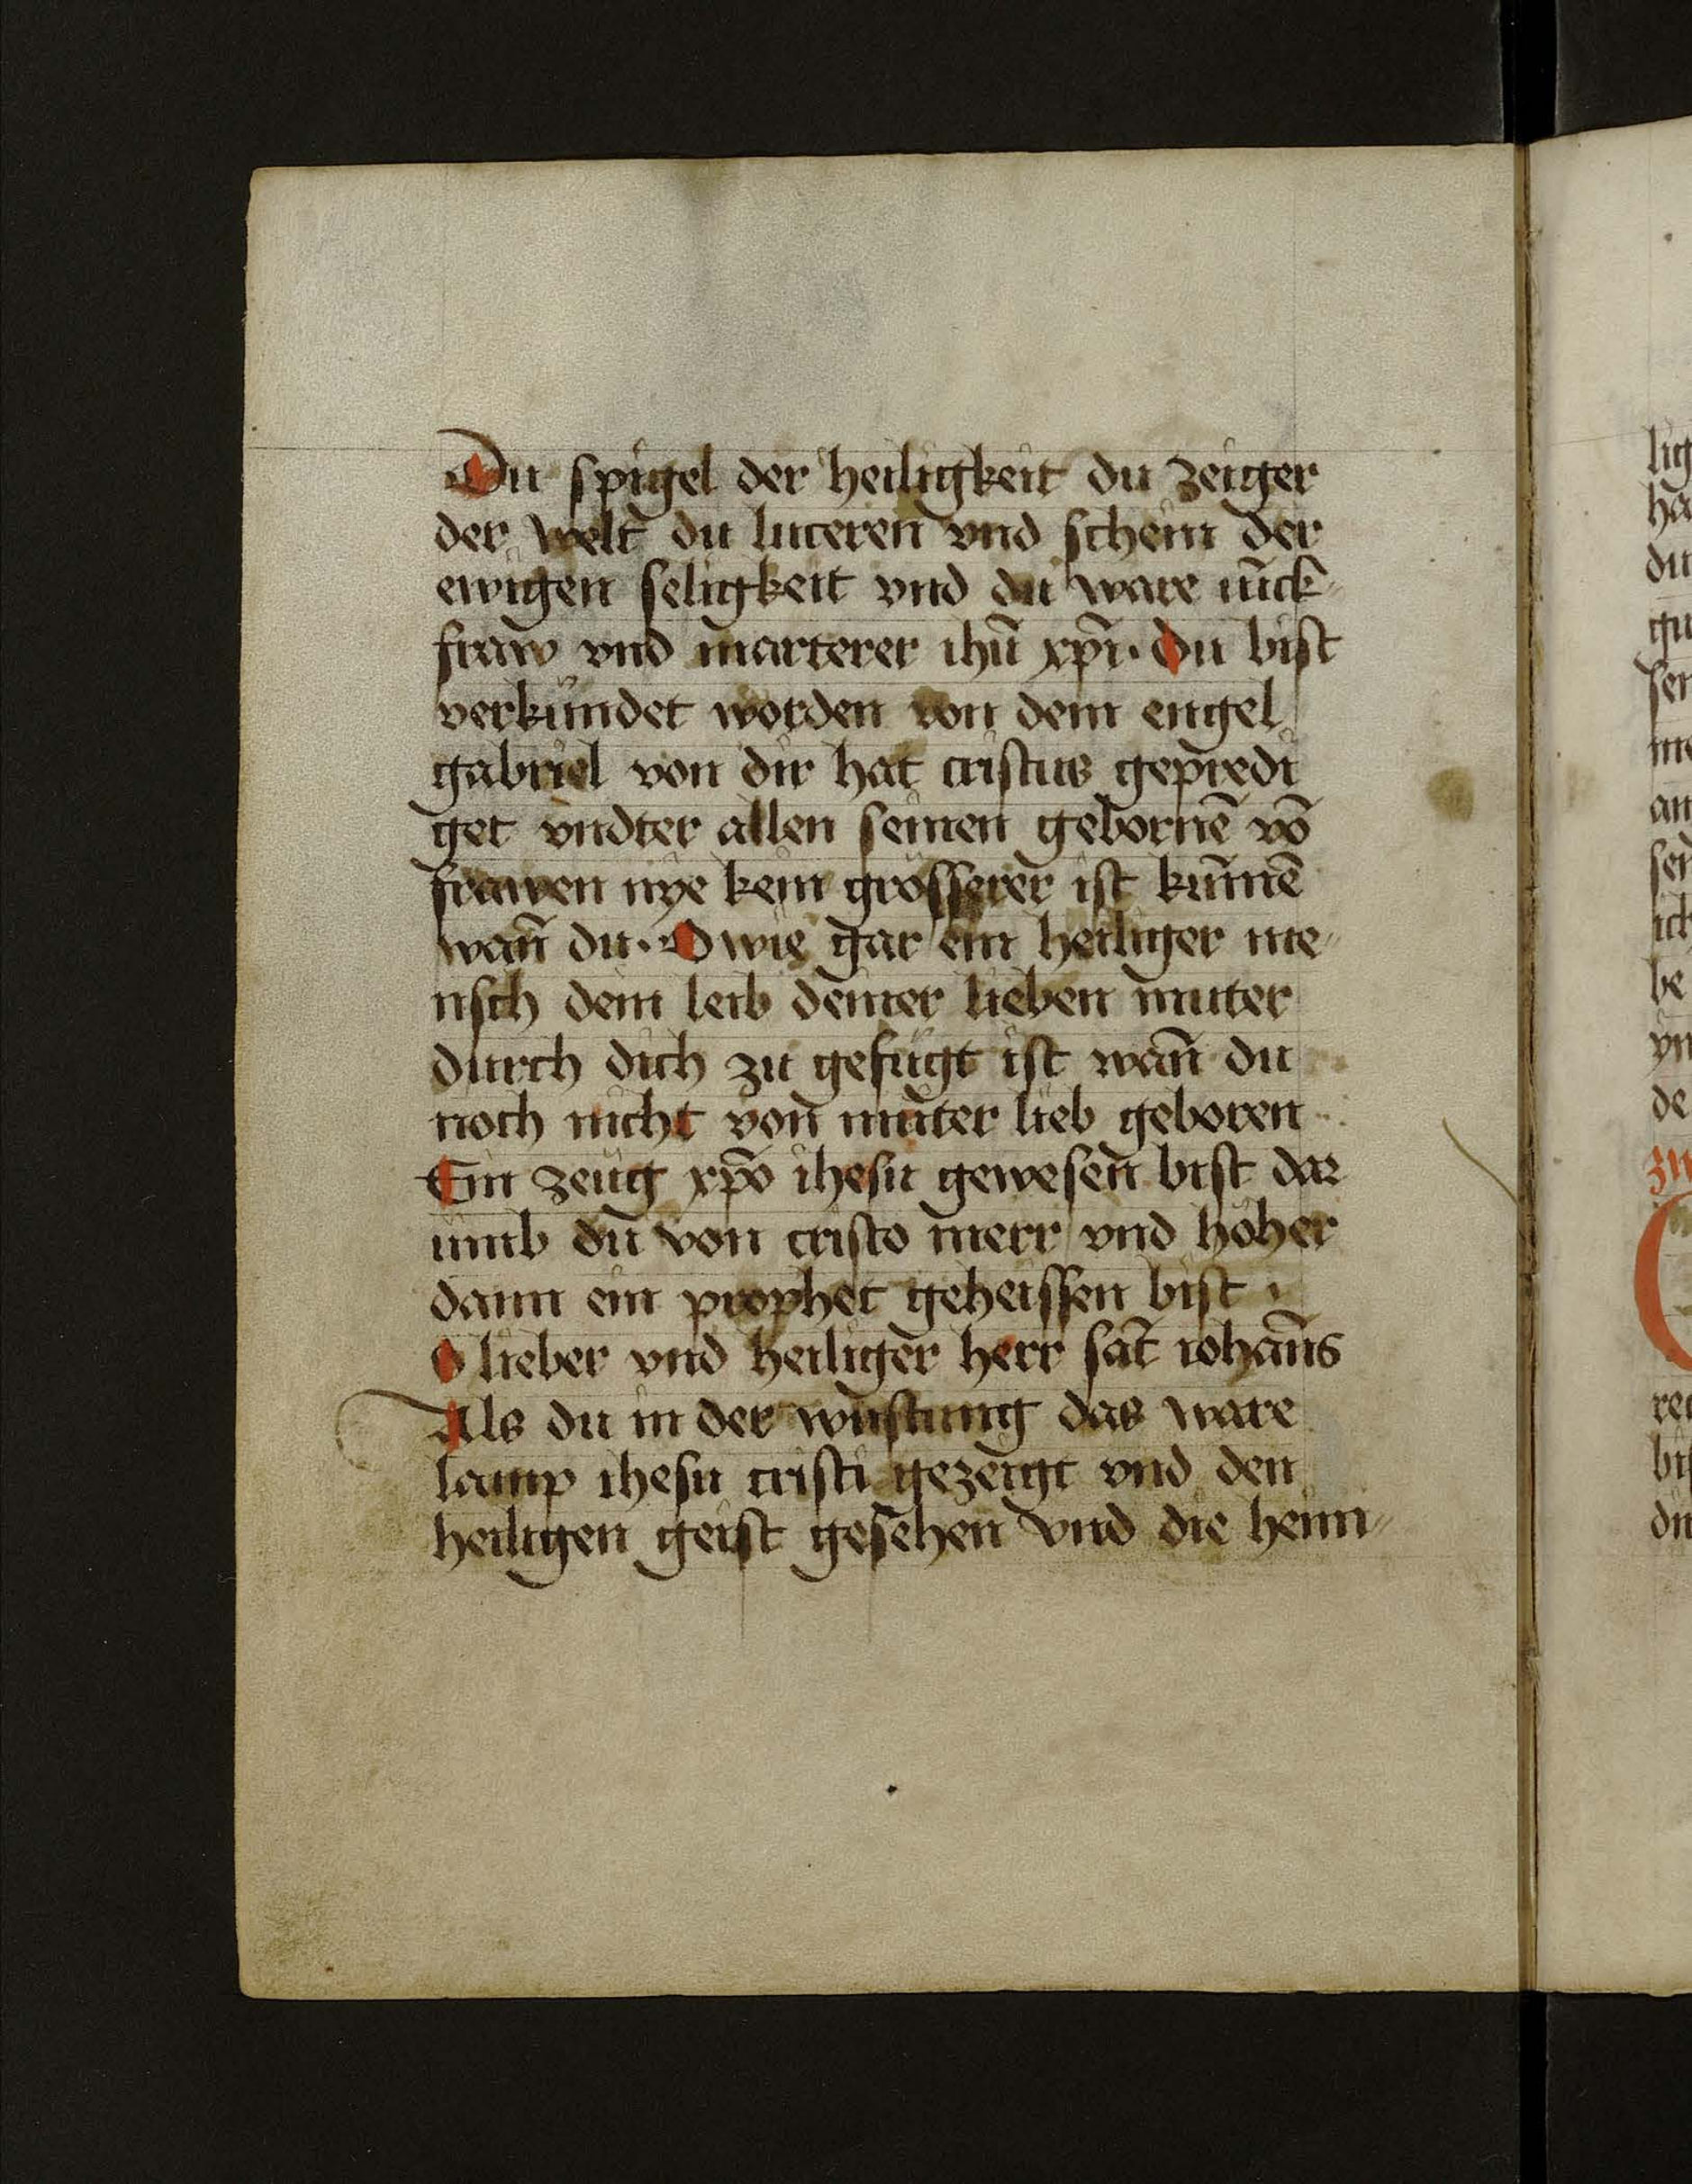 Du spigel der heiligkeit du zeiger
der welt du luceren vnd schein der
ewigen seligkeit vnd du ware iūck
fraw vnd marterer ihū xp̄i · Du bist
verkündet worden von dem engel
gabriel von dir hat cristus gepredi
get vndter allen seinen gebornē vō
frawen nye kein grösserer ist kūmē
wan̄ du · O wie gar ein heiliger me⸗
nsch dem leib deiner lieben muter
durch dich zu gefügt ist wan̄ du
noch nicht von muter lieb geboren
Ein zeüg xp̄o ihesu gewesen bist dar
umb du von cristo merr vnd höher
dann ein prophet geheissen bist ·
O lieber vnd heiliger herr sāt iohan̄s
Als du in der wüstung das ware
lamp ihesu cristi gezeigt vnd den
heiligen geist gesehen vnd die heim⸗
lig
ha
du
gu
ser
me
an
sen
ich
be
vn
de
zu
re
bis
du